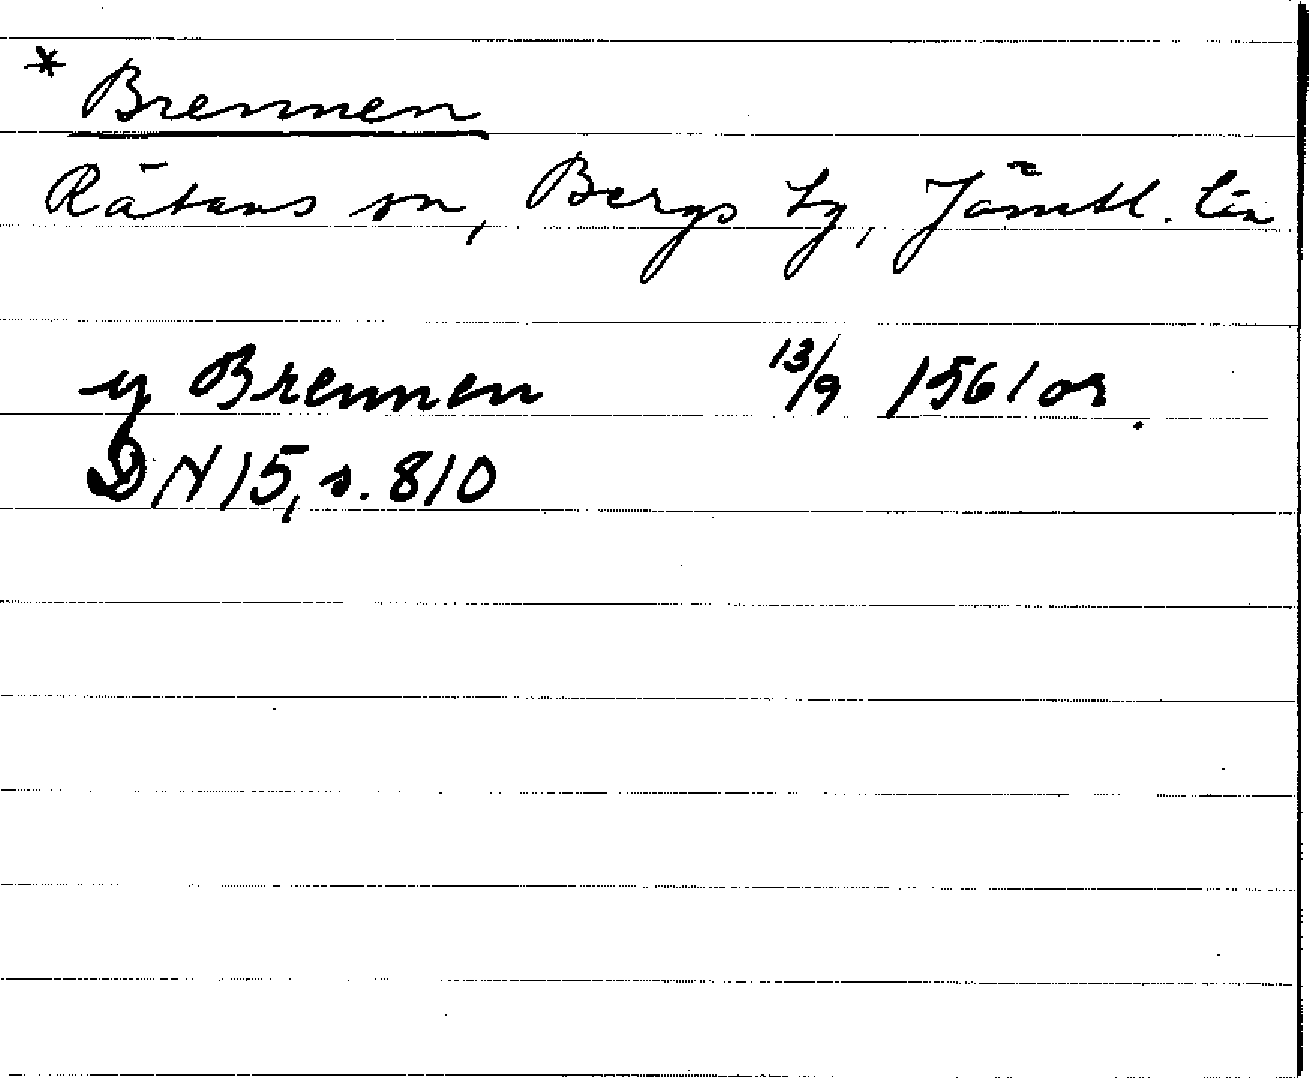 * Brennen
Rätans sn, Bergs tg, Jämtl. län
y Brennen 13/9 1561 or.
DN 15, s. 810